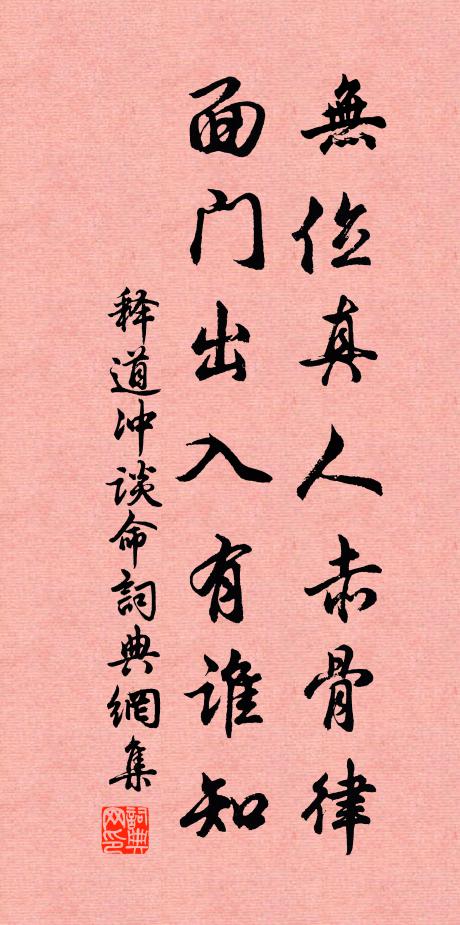 無位真人赤骨律
面门出入有谁知
释道冲谈命詞典網集
詞典网印